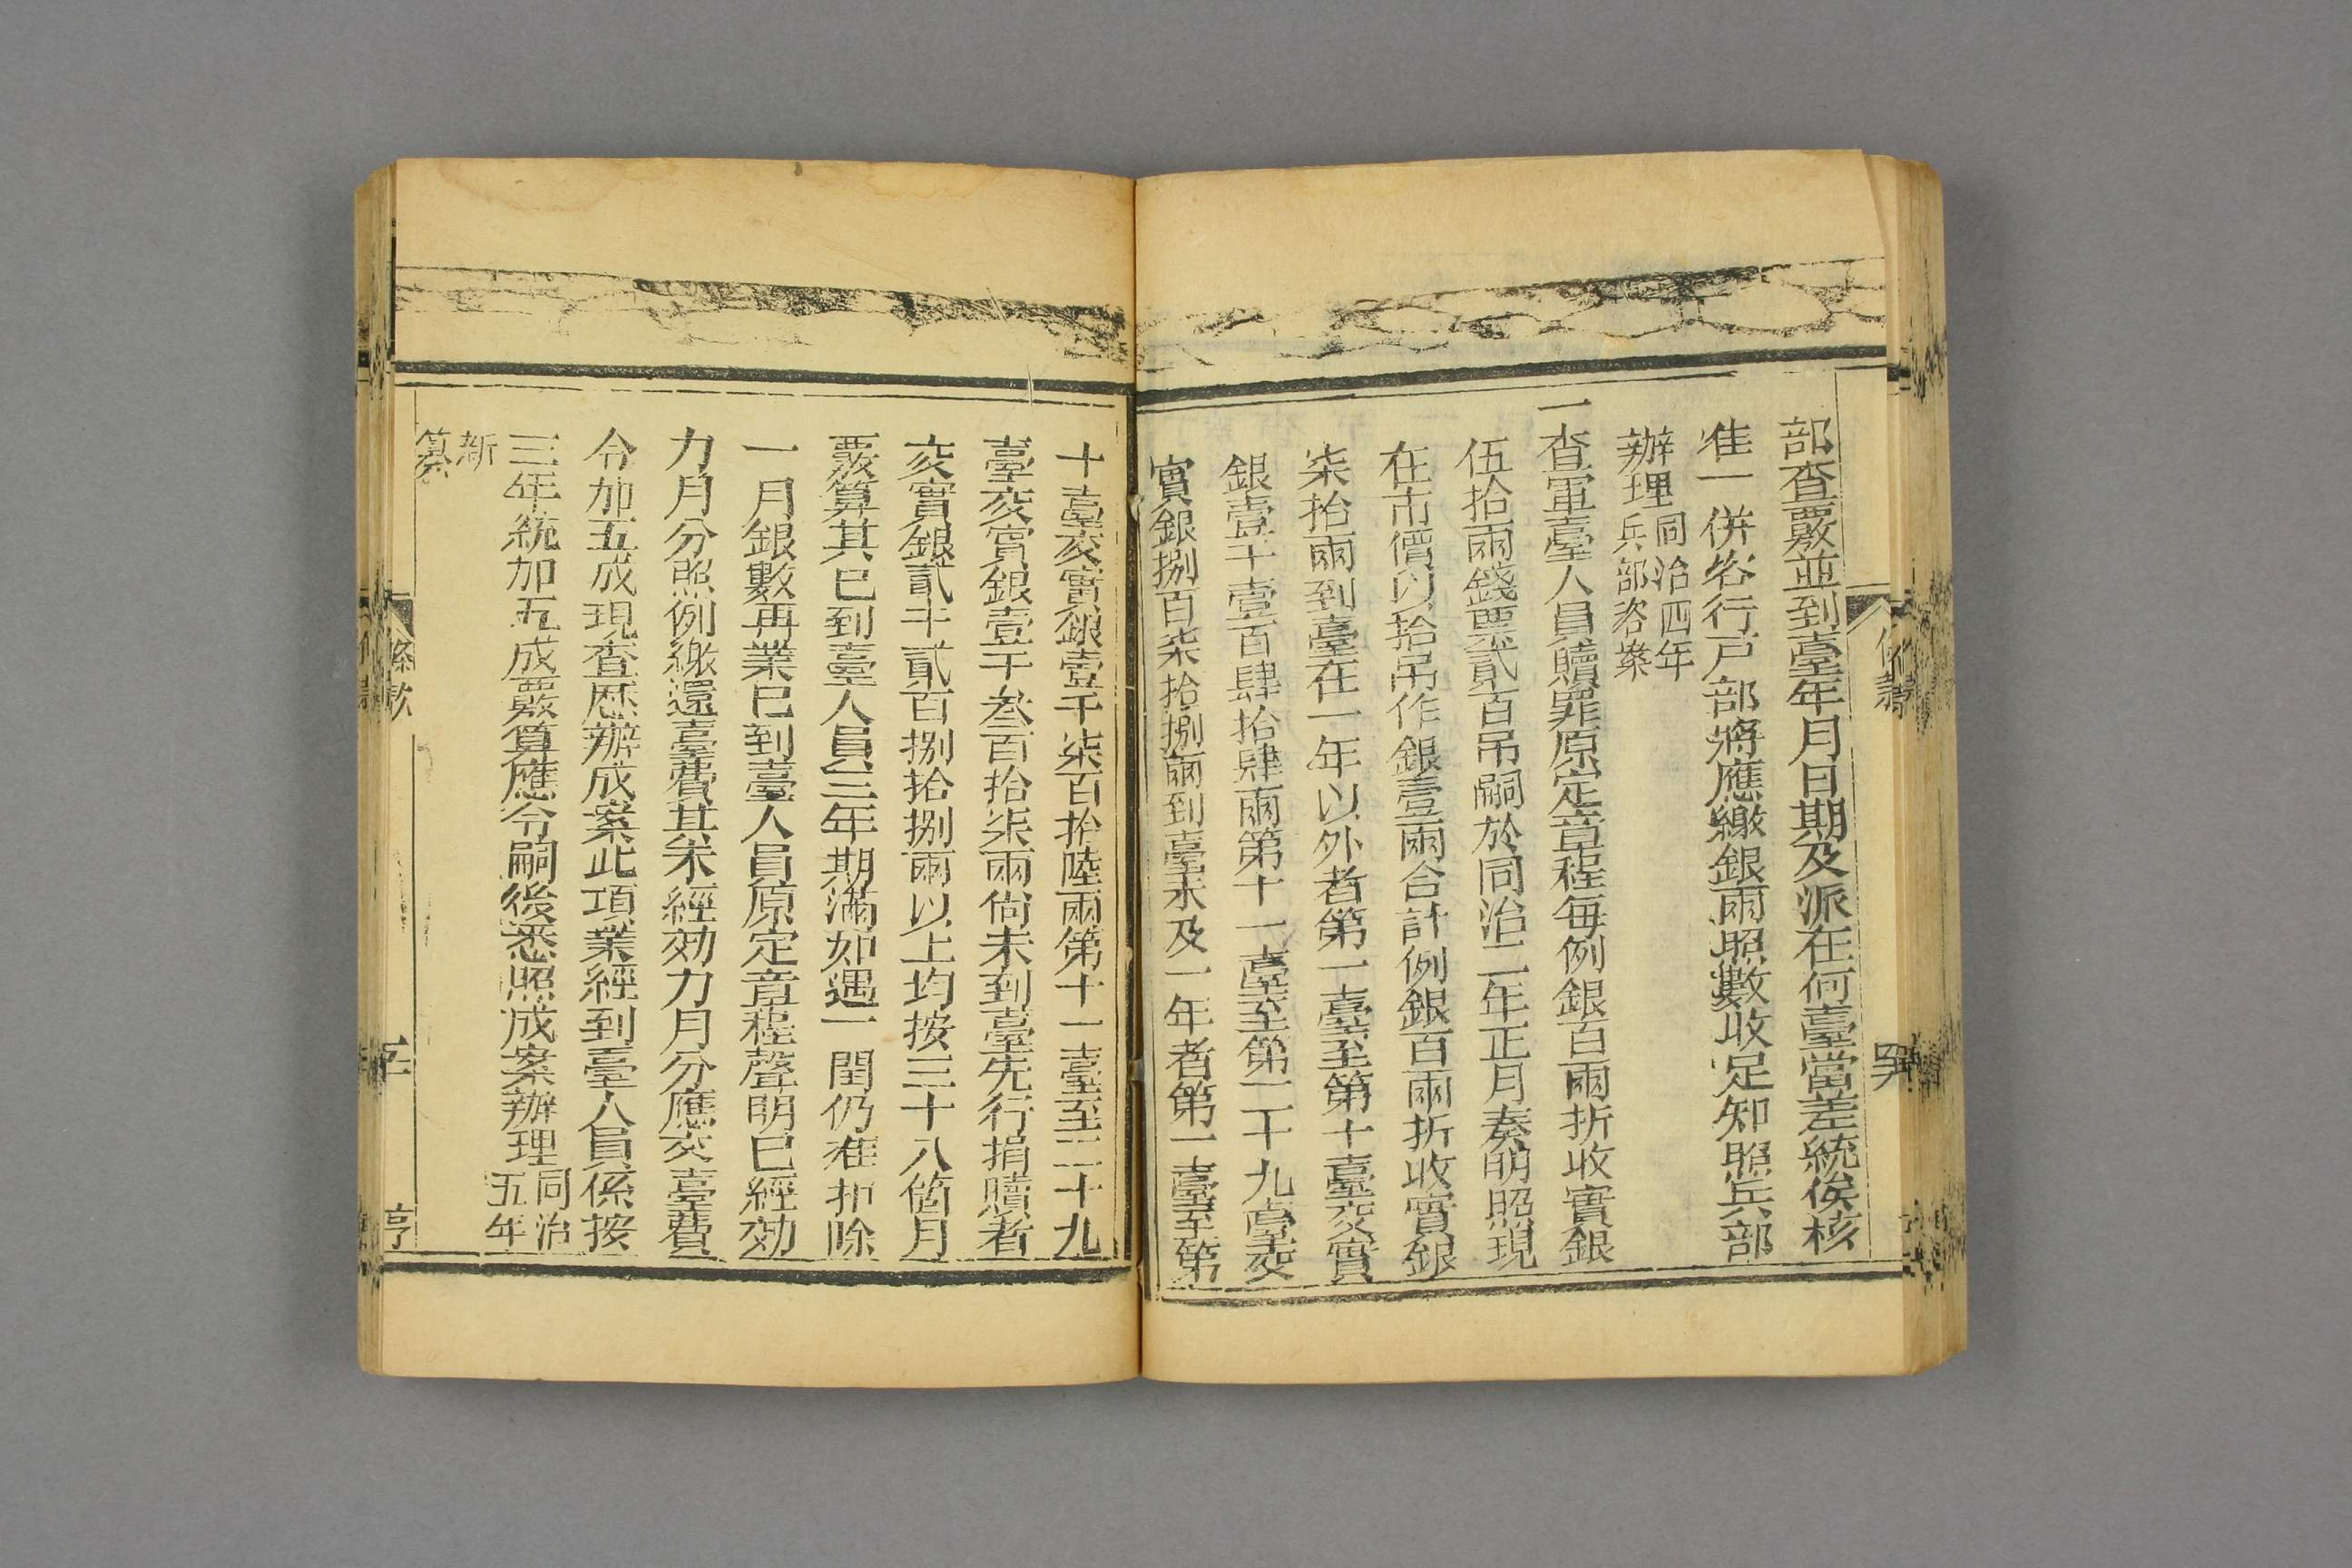 部查覈並到臺年月日期及派在何臺當差統俟核
准一併咨行戸部將應繳銀兩照數收足知照兵部
辦理同治四年
兵部咨案
一查軍臺人員贖罪原定章程每例銀百兩折收實銀
伍拾兩錢票貳百吊嗣於同治二年正月奏明照現
在市價以拾吊作銀壹兩合計例銀百兩折收實銀
柒拾兩到臺在一年以外者第一臺至第十臺交實
銀壹千壹百肆拾肆兩第十一臺至第二十九臺交
實銀捌百柒拾捌兩到臺未及一年者第一臺至第
十臺交實銀壹千柒百拾陸兩第十一臺至二十九
臺交實銀壹千叁百拾柒兩尚未到臺先行捐贖者
交實銀貳千貳百捌拾捌兩以上均按三十八箇月
覈算其已到臺人員三年期滿如遇一閏仍准扣除
一月銀數再業已到臺人員原定章程聲明已經効
力月分照例繳還臺費其未經効力月分應交臺費
令加五成現查歷辦成案此項業經到臺人員係按
三年統加五成覈算應令嗣後悉照成案辦理同治
五年
新
纂
條款
亨